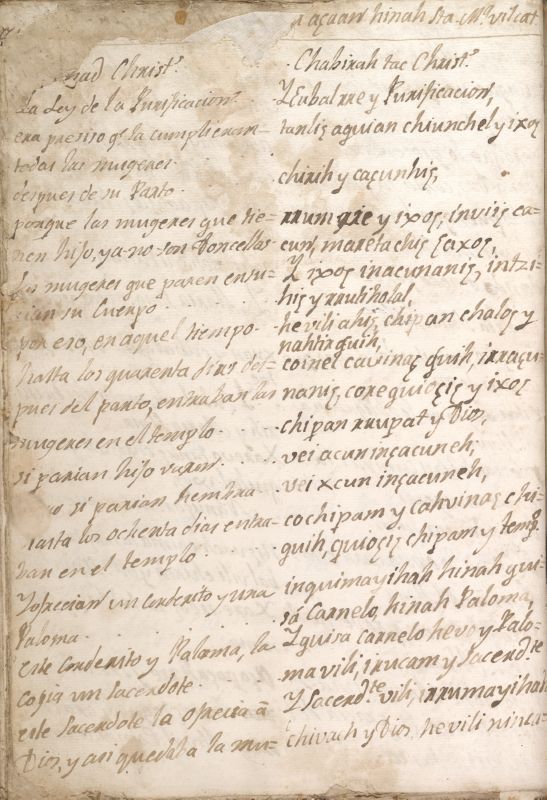 açaan hinah Sta. Mª. vilcat
Christ.º
La Ley de la Purificacion
era presiso q.e la cumplieran
todas las mugeres
despues de su Parto.
porque las mugeres que tie-
nen hijo, ya no son Doncellas
las mugeres que paren ensu-
cian su Cuerpo
y por eso, en aquel tiempo
hasta los quarenta dias des-
pues del parto, entraban las
mugeres en el templo
si parian hijo varon
si parian hembra
hasta los ochenta dias entra-
ban en el templo
Y ofrecian un corderito y una
Paloma.
este Corderito y Paloma, la
cogia un Sacerdote
este Sacerdote la ofrecia â
Dios, y asi quedaba la mu-
Chabirah tac Christ.º
Y Eubal rre y Purificacion,
tanliς aquian chiunchel y ixoς
chirih y caçunhiς,
rrum rre y ixoς, inviriς ca-
cun, maretachiς ςaxoς,
Y ixoς inacunaniς, intzi-
hiς y rrutiholal,
hevili ahiς, chipan chaloς y
nahtirquih,
coinel cavinaς quih, irraçu-
naniς, core quioçiς y ixoς
chipan rrupat y Dios,
vei acun inçacuneh,
vei xcun inçacuneh,
cochipam y cahvinaς chi-
quih, quioçiς chipam y temp.º
inquimayihah hinah qui-
sá Carnelo, hinah Paloma,
Y quisa carnelo hevo y Palo-
ma vili, irucam y Sacerd.te
Y Sacerd.te vili, irrumayihah
chivach y Dios, hevili ninca-